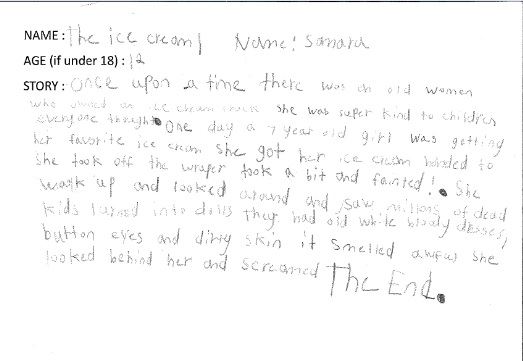 NAME: The ice cream| Name: Samara
AGE (if under 18) : 12
STORY: Once upon a time there was an old women
who owned an ice cream truck she was super kind to children
everyone thought. One day a 7 year old girl was getting
her favorite ice cream she got her ice cream handed to
She took off the wraper took a bit and fainted! She
wook up and looked around and saw millons of dead
kids turned into dolls they had old white bloody dresses,
button eyes and dirty skin it smelled awful she
looked behind her and screamed The End.